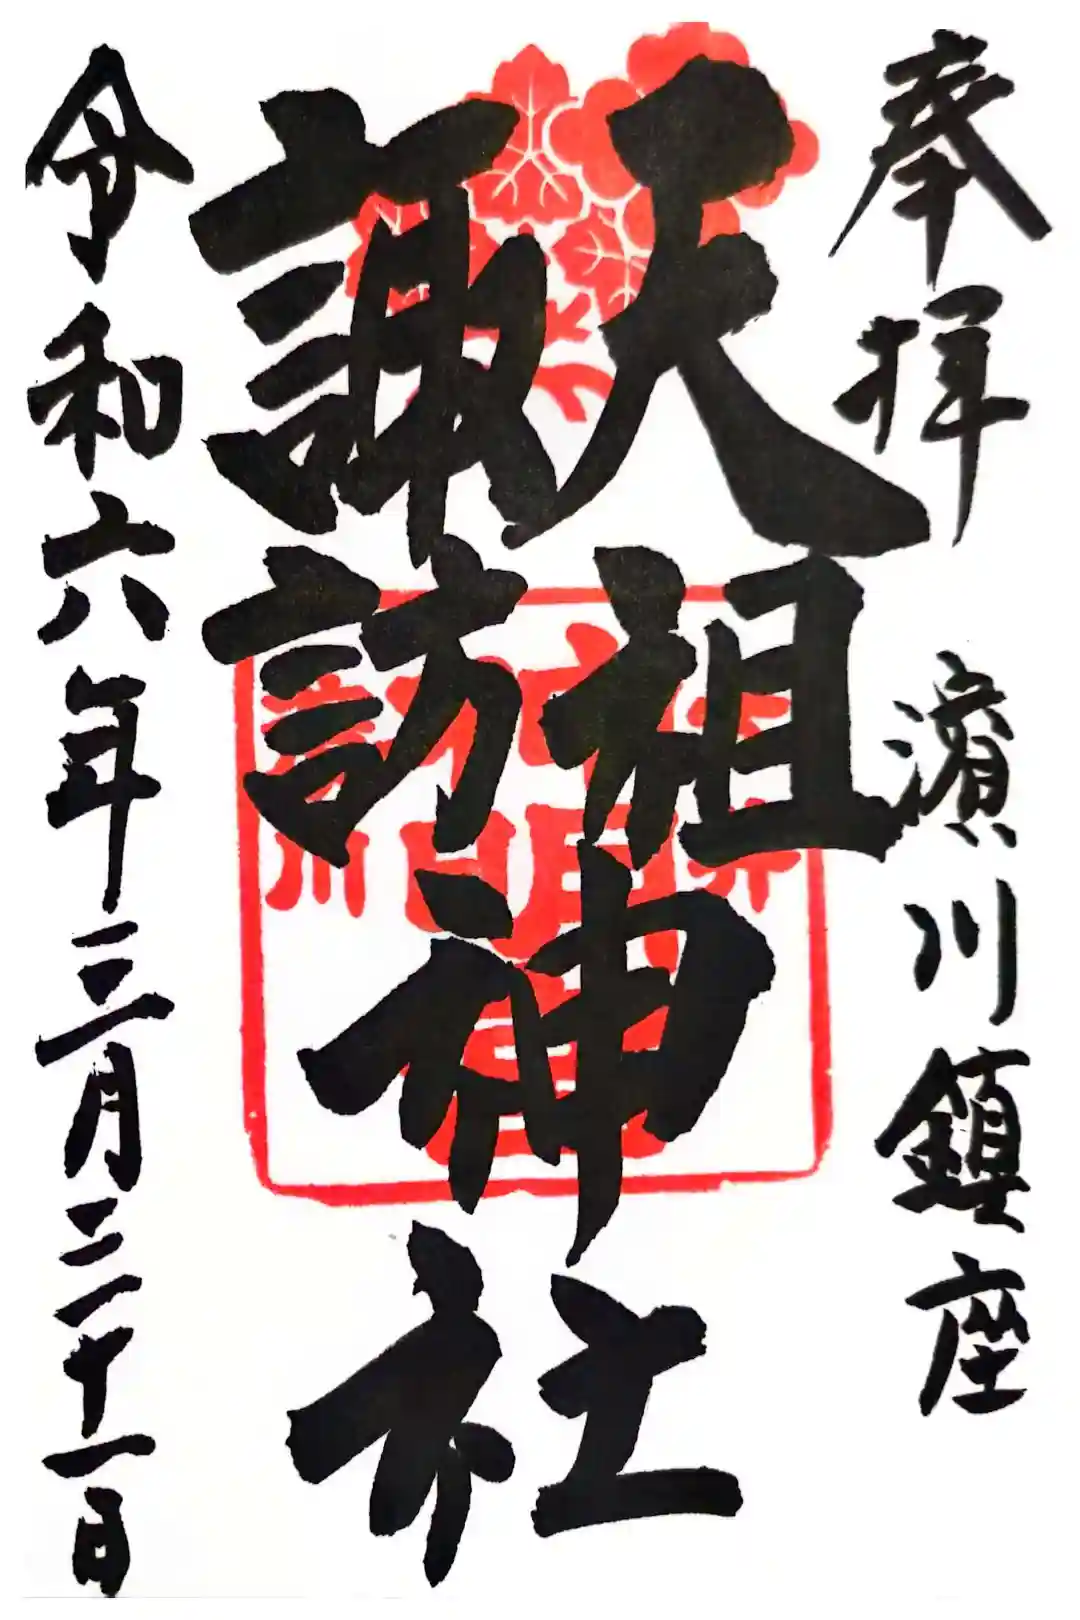 奉拝 濱川鎮座
天祖
諏訪
神社
令和六年三月三十一日